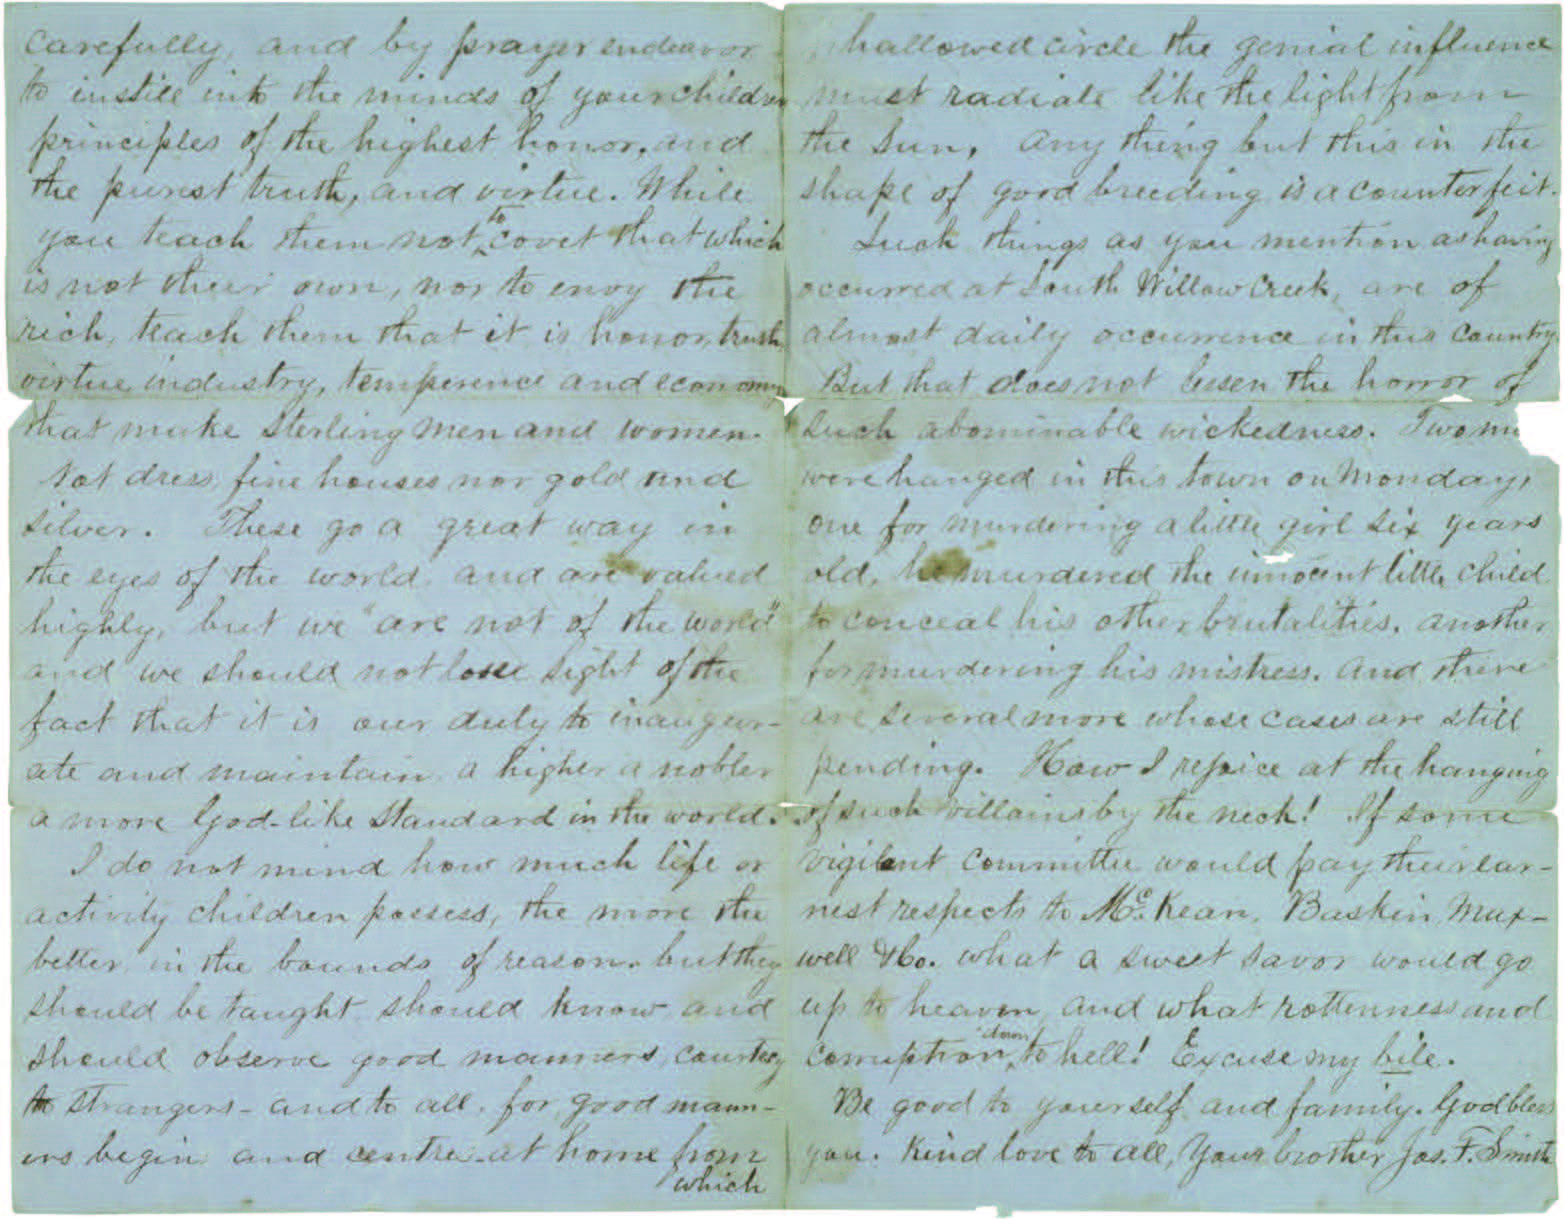 carefully, and by prayer endeavor
to instill into the minds of your children
principles of the highest honor, and
the purest truth, and virtue. While
you teach them not to covet that which
is not their own, nor to envy the
rich, teach them that it is honor, truth,
virtue, industry, temperence and economy
that make sterling men and women.
Not dress, fine houses nor gold and
silver. These go a great way in
the eyes of the world, and are valued
highly, but we "are not of the world"
and we should not lose sight of the
fact that it is our duty to inaugur-
ate and maintain a higher a nobler
a more God-like standard in the world.
I do not mind how much life or
activity children possess, the more the
better, in the bounds of reason. but they
should be taught should know and
should observe good manners, courtesy
to strangers - and to all. for good mann-
ers begin and centre at home from
which
hallowed circle the genial influence
must radiate like the light from
the Sun. Any thing but this in the
shape of good breeding is a counterfeit.
Such things as you mention as having
occurred at South Willow Creek, are of
almost daily occurrence in this country.
But that does not lessen the horror of
such abominable wickedness. Two
were hanged in this town on Monday,
one for murdering a little girl six years
old, he murdered the innocent little child
to conceal his other brutalities. another
for murdering his mistress. and there
are several more whose cases are still
pending. How I rejoice at the hanging
of such villains by the neck! If some
vigilent committee would pay their ear-
nest respects to McKean, Baskin, Max-
well & Co. what a sweet savor would go
up to heaven and what rottenness and
corruption, down to hell! Excuse my bile.
Be good to yourself and family. God bless
you. Kind love to all, Your brother Jos. F. Smith